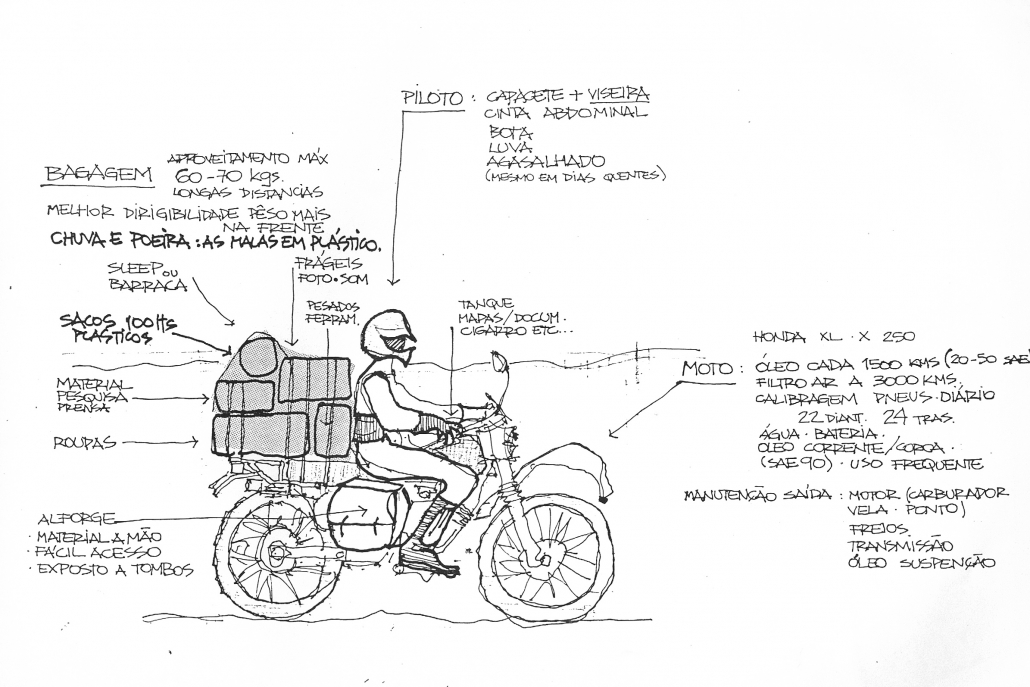 PILOTO : CAPACETE + VISEIRA
CINTA ABDOMINAL
BOTA
LUVA
AGASALHADO
(MESMO EM DIAS QUENTES)
BAGAGEM
APROVEITAMENTO MÁX
60-70 kgs.
LONGAS DISTANCIAS
MELHOR DIRIGIBILIDADE PÊSO MAIS
NA FRENTE
CHUVA E POEIRA : AS MALAS EM PLÁSTICO.
SLEEP OU
BARRACA
FRÁGEIS
FOTO • SOM
SACOS 100 lts
PLÁSTICOS
PESADOS
FERRAM.
TANQUE
MAPAS/DOCUM.
CIGARRO ETC...
MATERIAL
PESQUISA
PRENSA
ROUPAS
ALFORGE
· MATERIAL A MÃO
· FÁCIL ACESSO
· EXPOSTO A TOMBOS
HONDA XL · X 250
MOTO : ÓLEO CADA 1500 KMS (20-50 SAE
FILTRO AR A 3000 KMS.
CALIBRAGEM PNEUS · DIÁRIO
22 DIANT. 24 TRAS.
ÁGUA · BATERIA ·
ÓLEO CORRENTE/COROA ·
(SAE 90) · USO FREQUENTE
MANUTENÇÃO SAÍDA : MOTOR (CARBURADOR
VELA · PONTO)
FREIOS
TRANSMISSÃO
ÓLEO SUSPENÇÃO